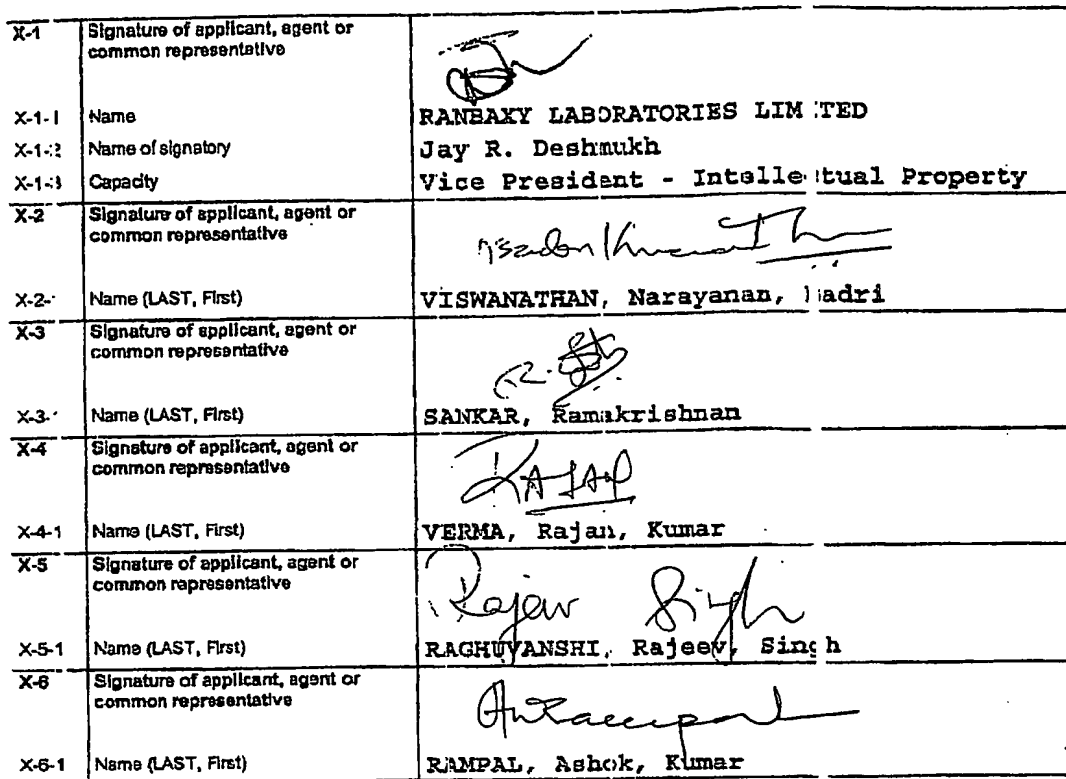 X-1 Signature of applicant, agent or
common representative
X-1-1 Name RANBAXY LABORATORIES LIMITED
X-1-2 Name of signatory Jay R. Deshmukh
X-1-3 Capacity Vice President - Intellectual Property
X-2 Signature of applicant, agent or
common representative
X-2-1 Name (LAST, First) VISWANATHAN, Narayanan, Badri
X-3 Signature of applicant, agent or
common representative
X-3-1 Name (LAST, First) SANKAR, Ramakrishnan
X-4 Signature of applicant, agent or
common representative
RAJAN
X-4-1 Name (LAST, First) VERMA, Rajan, Kumar
X-5 Signature of applicant, agent or
common representative
Rajeev Singh
X-5-1 Name (LAST, First) RAGHUVANSHI, Rajeev, Singh
X-6 Signature of applicant, agent or
common representative
X-6-1 Name (LAST, First) RAMPAL, Ashok, Kumar